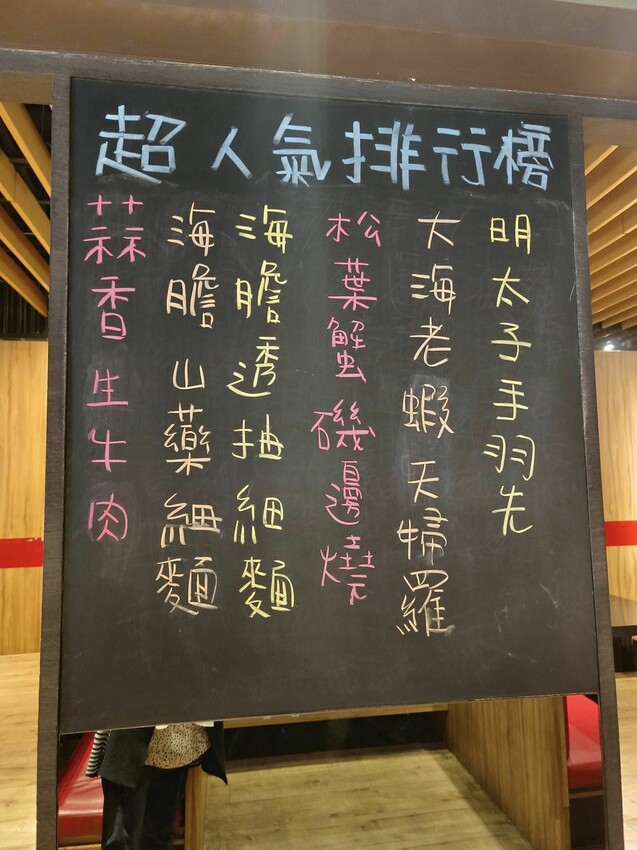 超人氣排行榜
明太子手羽先
大海老蝦天婦羅
松葉蟹磯邊燒
海膽透抽細麵
海膽山藥細麵
蒜香生牛肉